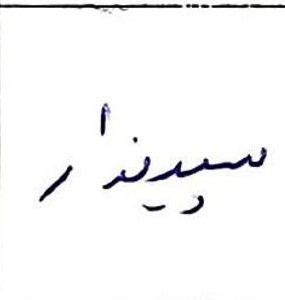 سپیدار